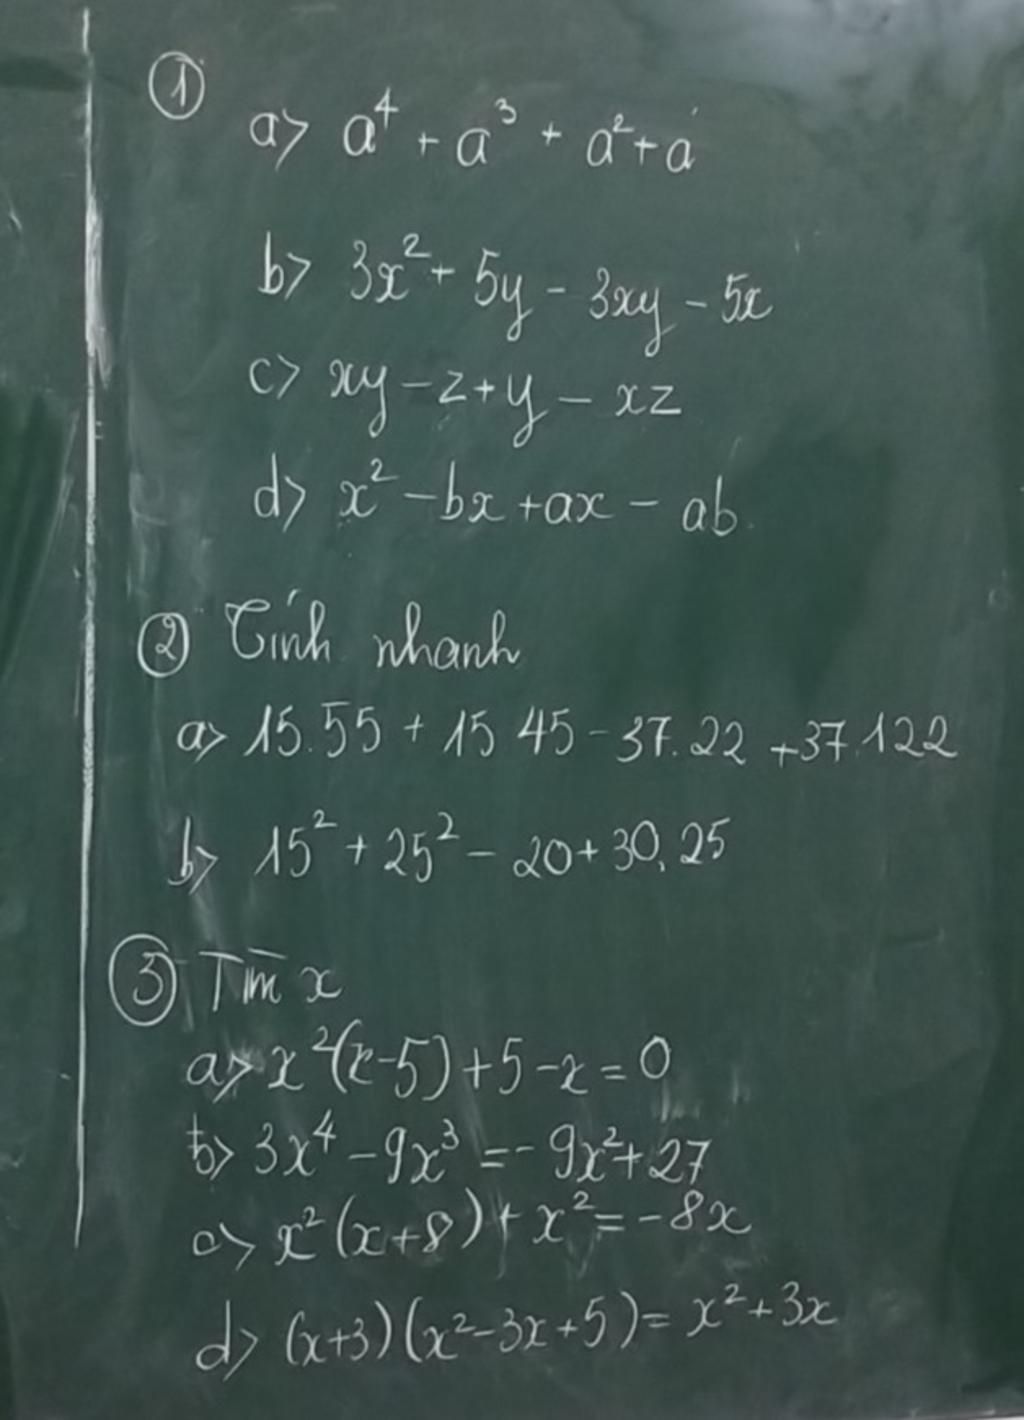 ① a> a⁴ + a³ + a² + a
b> 3x² + 5y - 3xy - 5x
c> xy - z + y - xz
d> x² - bx + ax - ab
② Tính nhanh
a> 15.55 + 15 45 - 37.22 + 37.122
b> 15² + 25² - 20 + 30.25
③ Tìm x
a> x²(x-5) + 5 - x = 0
b> 3x⁴ - 9x³ = - 9x² + 27
c> x²(x+8) + x² = -8x
d> (x+3)(x² - 3x + 5) = x² + 3x